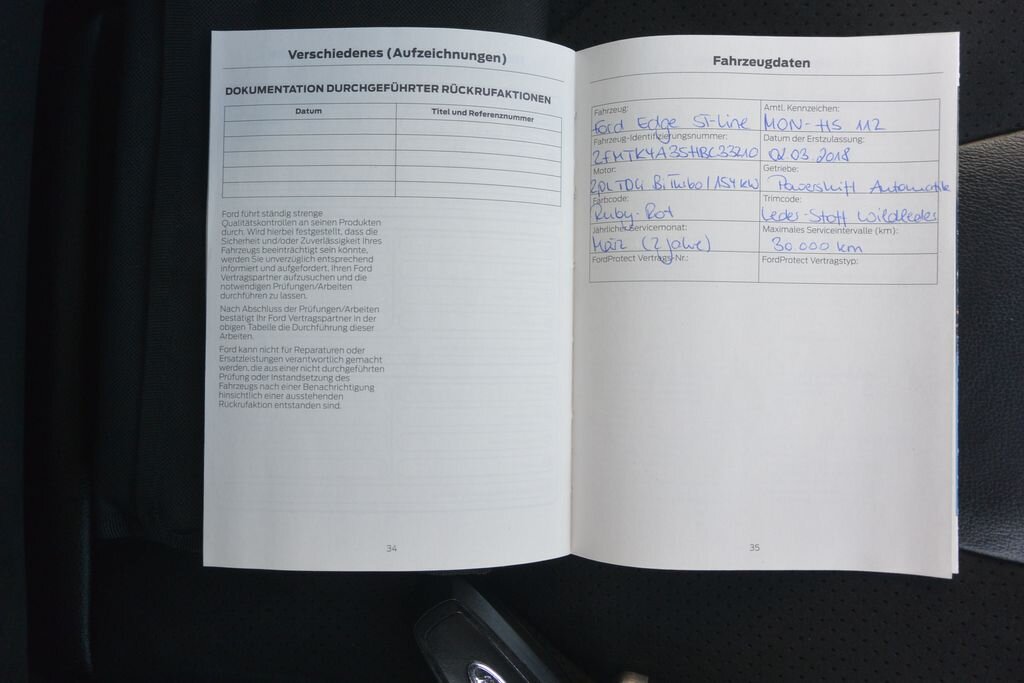 Verschiedenes (Aufzeichnungen)
DOKUMENTATION DURCHGEFÜHRTER RÜCKRUFAKTIONEN
Datum Titel und Referenznummer
Ford führt ständig strenge
Qualitätskontrollen an seinen Produkten
durch. Wird hierbei festgestellt, dass die
Sicherheit und/oder Zuverlässigkeit Ihres
Fahrzeugs beeinträchtigt sein könnte,
werden Sie unverzüglich entsprechend
informiert und aufgefordert, Ihren Ford
Vertragspartner aufzusuchen und die
notwendigen Prüfungen/Arbeiten
durchführen zu lassen.
Nach Abschluss der Prüfungen/Arbeiten
bestätigt Ihr Ford Vertragspartner in der
obigen Tabelle die Durchführung dieser
Arbeiten.
Ford kann nicht für Reparaturen oder
Ersatzleistungen verantwortlich gemacht
werden, die aus einer nicht durchgeführten
Prüfung oder Instandsetzung des
Fahrzeugs nach einer Benachrichtigung
hinsichtlich einer ausstehenden
Rückrufaktion entstanden sind.
34
Fahrzeugdaten
Fahrzeug: Amtl. Kennzeichen:
Ford Edge ST-Line MON-HS 112
Fahrzeug-Identifizierungsnummer: Datum der Erstzulassung:
2FMTK4A35HBC33210 02.03.2018
Motor: Getriebe:
2,0L TDCi BiTurbo/154KW Powershift Automatik
Farbcode: Trimcode:
Ruby-Rot Leder-Stoff Wildleder
Jährlicher Servicemonat: Maximales Serviceintervalle (km):
März (2 Jahre) 30.000 km
FordProtect Vertrags-Nr.: FordProtect Vertragstyp:
35